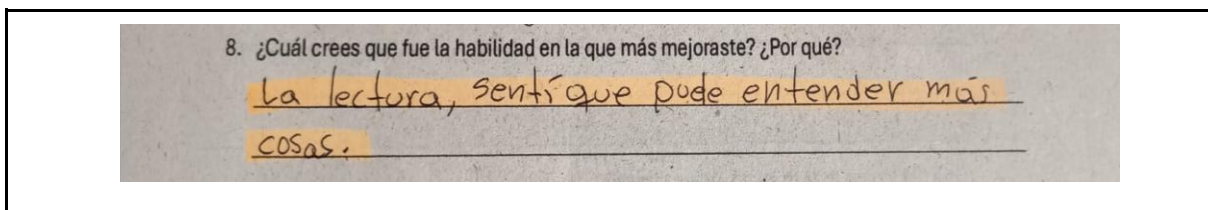 8. ¿Cuál crees que fue la habilidad en la que más mejoraste? ¿Por qué?
La lectura, sentí que pude entender más
cosas.